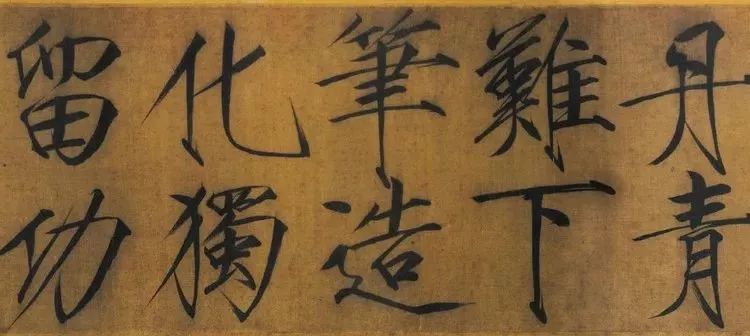 丹青
難下
筆造
化獨
留功